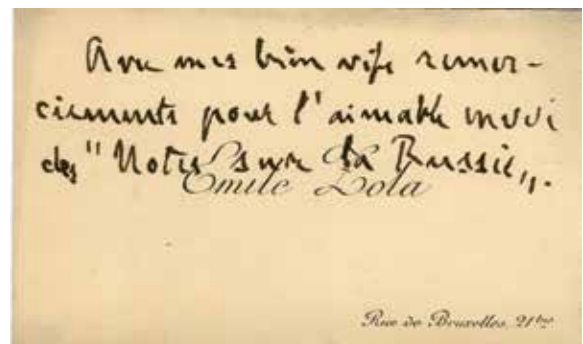 Avec mes bien vifs remer-
ciements pour l'aimable envoi
des "Notes sur la Russie„.
Emile Zola
Rue de Bruxelles, 21bis